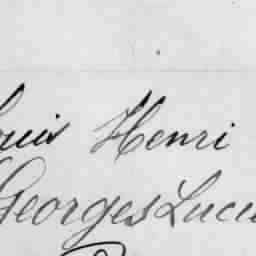 Louis Henri
Georges Luci